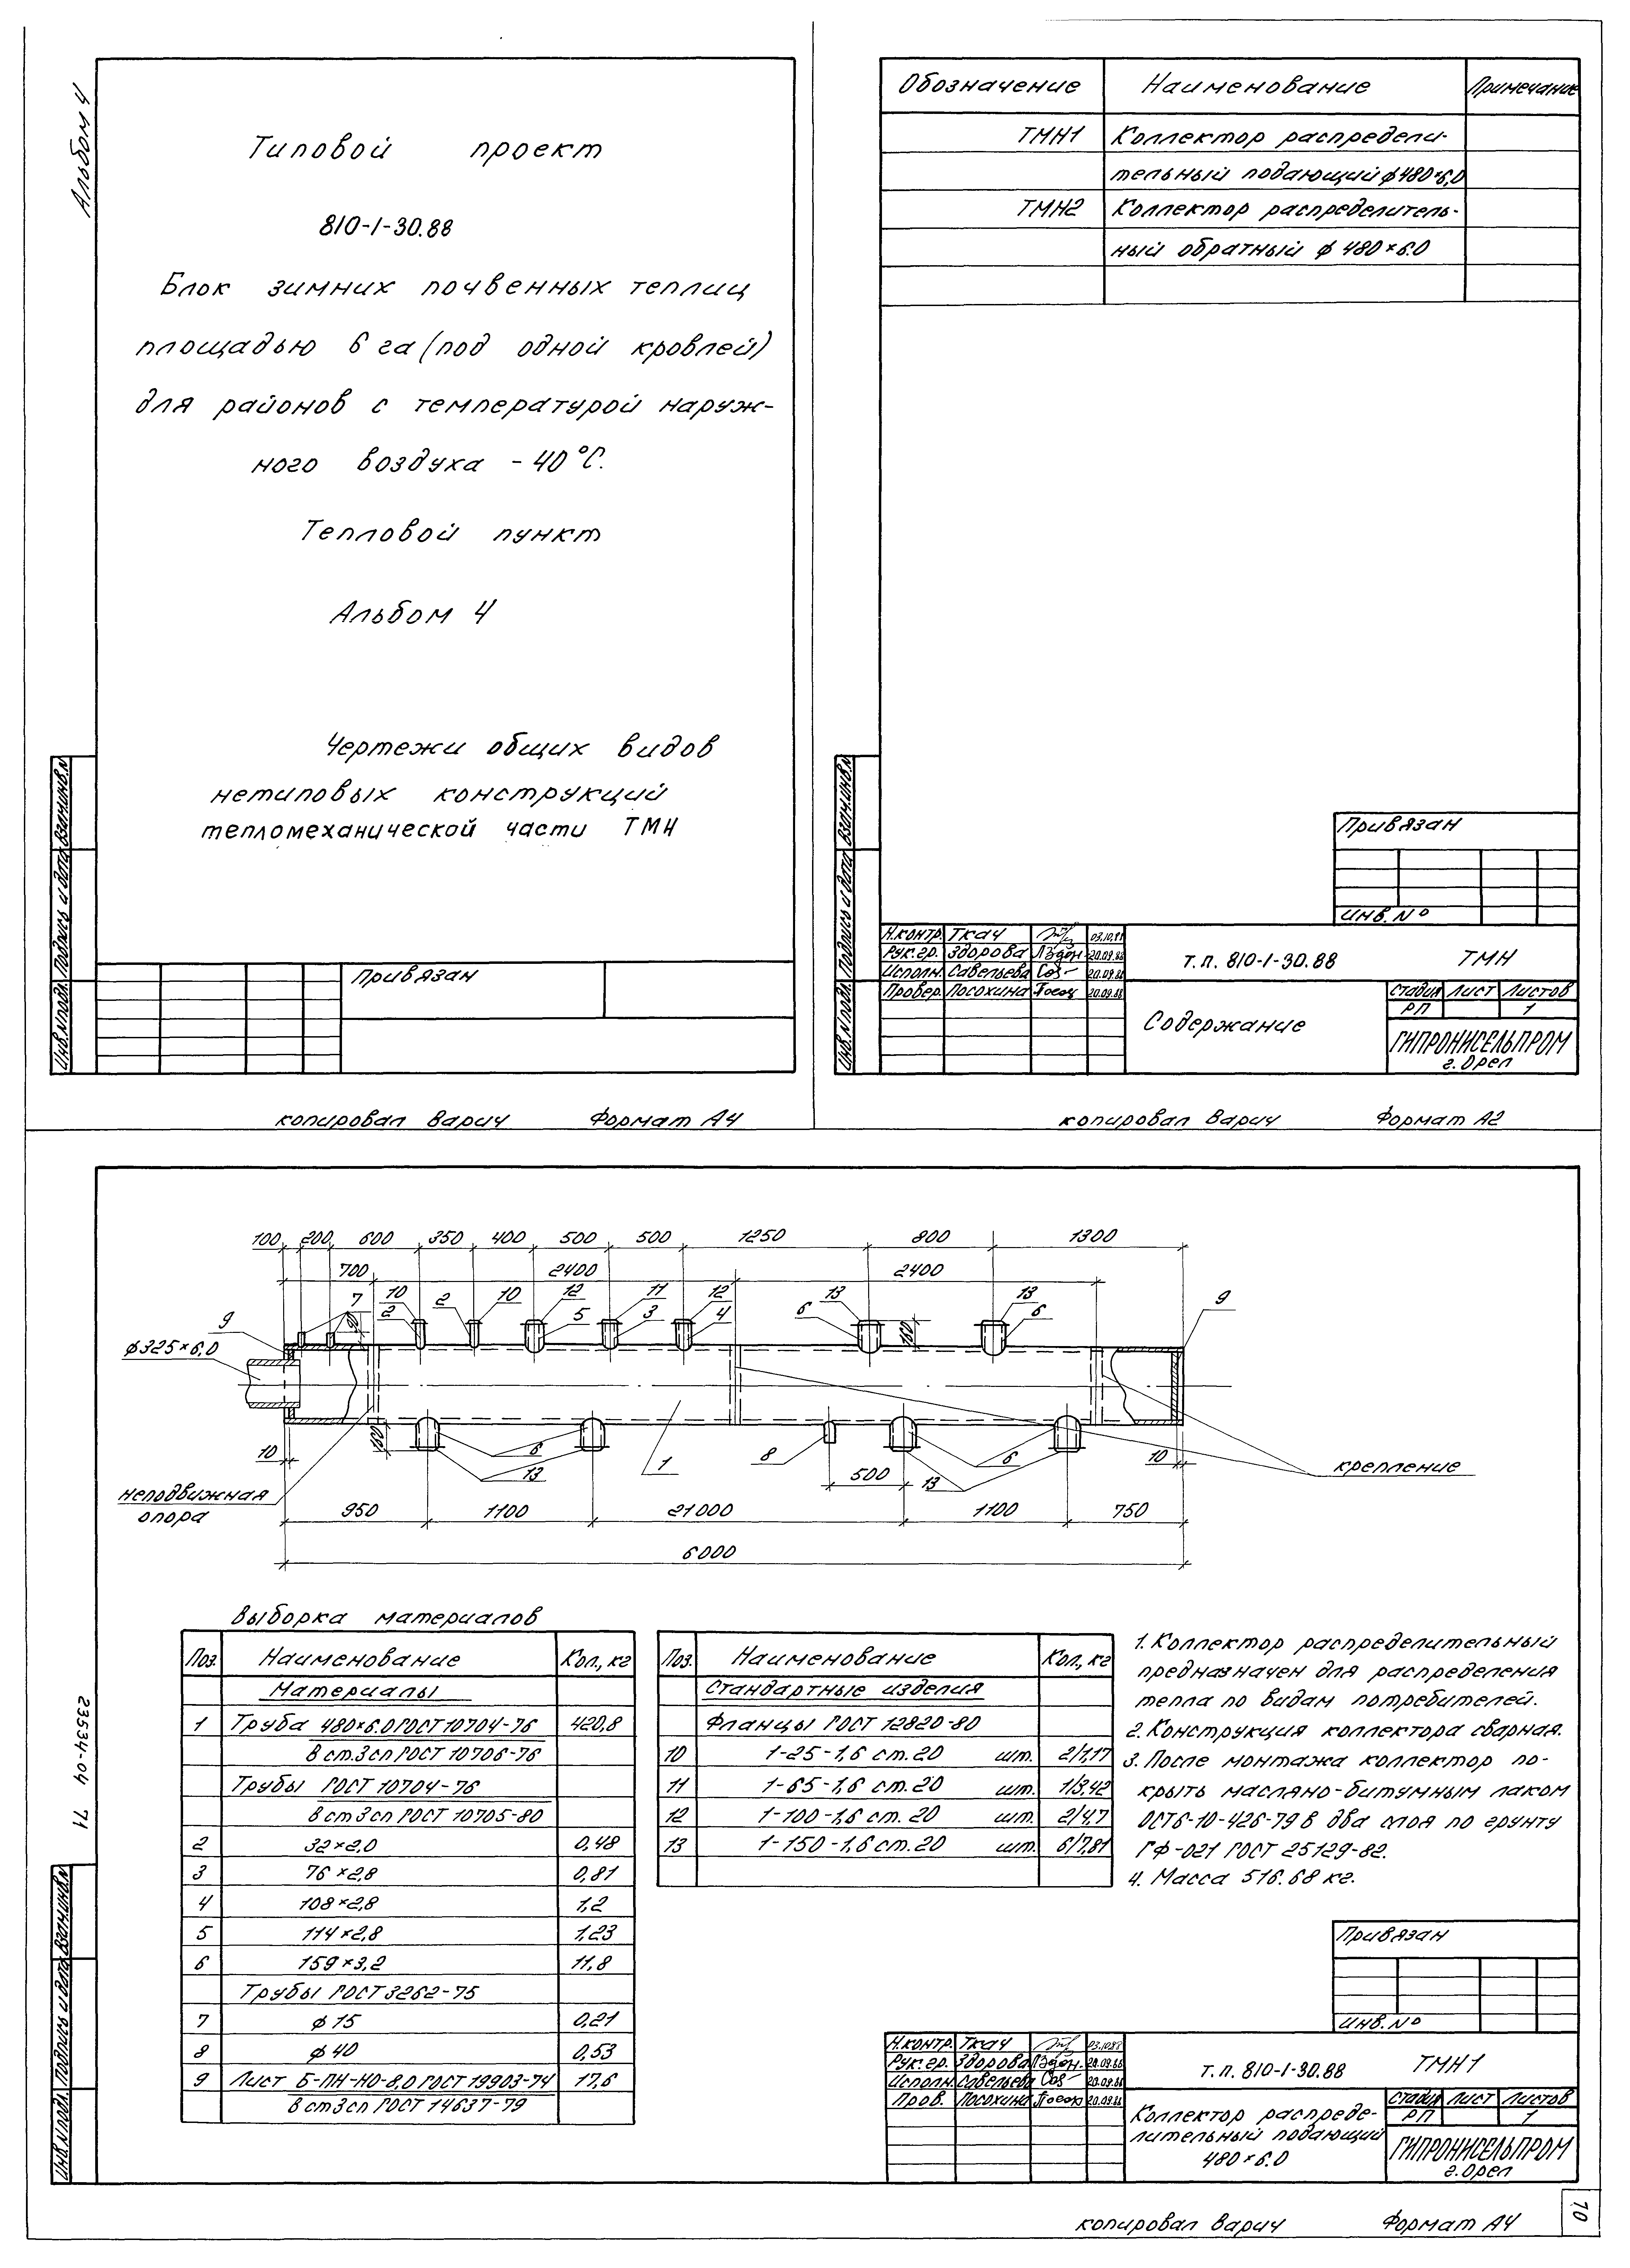 Альбом 4
Типовой проект
810-1-30.88
Блок зимних почвенных теплиц
площадью 6 га (под одной кровлей)
для районов с температурой наруж-
ного воздуха -40°С.
Тепловой пункт
Альбом 4
Чертежи общих видов
нетиповых конструкций
тепломеханической части ТМН
Привязан
Инв.N подл. Подпись и дата Взам.инв.N
копировал Варич Формат А4
Обозначение Наименование Примечание
ТМН1 Коллектор распредели-
тельный подающий ф480×6,0
ТМН2 Коллектор распределитель-
ный обратный ф 480×6.0
Привязан
Инв. №
Инв.N подл. Подпись и дата Взам.инв.N
Н.контр. Ткач 03.10.88
Рук.гр. Здорова 20.09.88
Исполн. Савельева 20.09.88
Провер. Посохина 20.09.88
т.п. 810-1-30.88 ТМН
Содержание
Стадия Лист Листов
РП 1
ГИПРОНИСЕЛЬПРОМ
г. Орел
копировал Варич Формат А2
100 200 600 350 400 500 500 1250 800 1300
700 2400 2400
7 10 2 2 10 12 5 11 3 12 4 13 6 13 6 9
9
ф325×6,0
100
10 6 13 1 8 500 13 6 10
крепление
неподвижная
опора
950 1100 21000 1100 750
6000
Выборка материалов
Поз. Наименование Кол., кг
Материалы
1 Труба 480×6.0 ГОСТ 10704-76 420,8
В ст.3сп ГОСТ 10706-76
Трубы ГОСТ 10704-76
В ст3сп ГОСТ 10705-80
2 32×2,0 0,48
3 76×2,8 0,81
4 108×2,8 1,2
5 114×2,8 1,23
6 159×3,2 11,8
Трубы ГОСТ 3262-75
7 ф 15 0,21
8 ф 40 0,53
9 Лист Б-ПН-НО-8,0 ГОСТ 19903-74 17,6
В ст3сп ГОСТ 14637-79
Поз. Наименование Кол., кг
Стандартные изделия
Фланцы ГОСТ 12820-80
10 1-25-1,6 ст.20 шт. 2/1,17
11 1-65-1,6 ст.20 шт. 1/3,42
12 1-100-1,6 ст.20 шт. 2/4,7
13 1-150-1,6 ст.20 шт. 6/7,81
1. Коллектор распределительный
предназначен для распределения
тепла по видам потребителей.
2. Конструкция коллектора сварная.
3. После монтажа коллектор по-
крыть масляно-битумным лаком
ОСТ6-10-426-79 в два слоя по грунту
ГФ-021 ГОСТ 25129-82.
4. Масса 516.68 кг.
23534-04 71
Инв.N подл. Подпись и дата Взам.инв.N
Привязан
Инв. №
Н.контр. Ткач 03.10.88
Рук.гр. Здорова 20.09.88
Исполн. Савельева 20.09.88
Пров. Посохина 20.09.88
т.п. 810-1-30.88 ТМН1
Коллектор распреде-
лительный подающий
480×6.0
Стадия Лист Листов
РП 1
ГИПРОНИСЕЛЬПРОМ
г. Орел
копировал Варич Формат А4
70